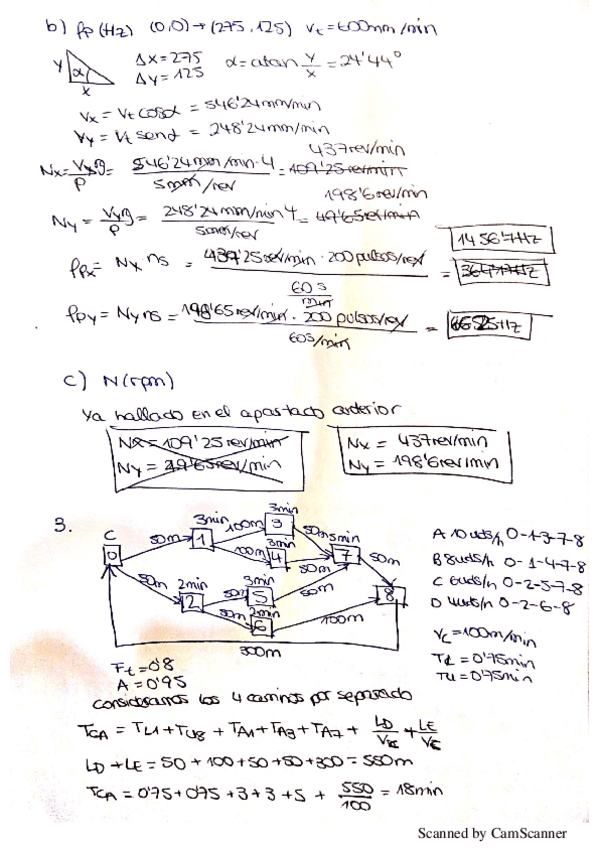 b) fp (Hz) (0,0) → (275,125) Vt = 600 mm/min
y α x
Δx = 275
Δy = 125
α = atan y/x = 24'44°
Vx = Vt cosα = 546'24 mm/min
Vy = Vt senα = 248'24 mm/min
437 rev/min
Nx = Vx g / p = 546'24 mm/min · 4 / 5 mm/rev = 109'25 rev/min
198'6 rev/min
Ny = Vy g / p = 248'24 mm/min 4 / 5 mm/rev = 49'65 rev/min
1456'7 Hz
fpx = Nx ns = 437'25 rev/min · 200 pulsos/rev / 60 s/min = 364'17 Hz
fpy = Ny ns = 198'65 rev/min · 200 pulsos/rev / 60 s/min = Hz
c) N (rpm)
Ya hallado en el apartado anterior
Nx = 109'25 rev/min
Ny = 49'65 rev/min
Nx = 437 rev/min
Ny = 198'6 rev/min
3.
C 0 50m 3min 1 100m 3min 3 50m 5min 7 50m 8
100m 3min 4 50m
50m 2min 2 50m 3min 5 50m
50m 2min 6 100m
300m
A 10 uds/h 0-1-3-7-8
B 8 uds/h 0-1-4-7-8
C 6 uds/h 0-2-5-7-8
D 4 uds/h 0-2-6-8
Vc = 100 m/min
TL = 0'75 min
TU = 0'75 min
Ft = 0'8
A = 0'95
Consideramos los 4 caminos por separado
TCA = TL1 + TU8 + TA1 + TA3 + TA7 + LD/Vc + LE/Vc
LD + LE = 50 + 100 + 50 + 50 + 300 = 550m
TCA = 0'75 + 0'75 + 3 + 3 + 5 + 550/100 = 18min
Scanned by CamScanner